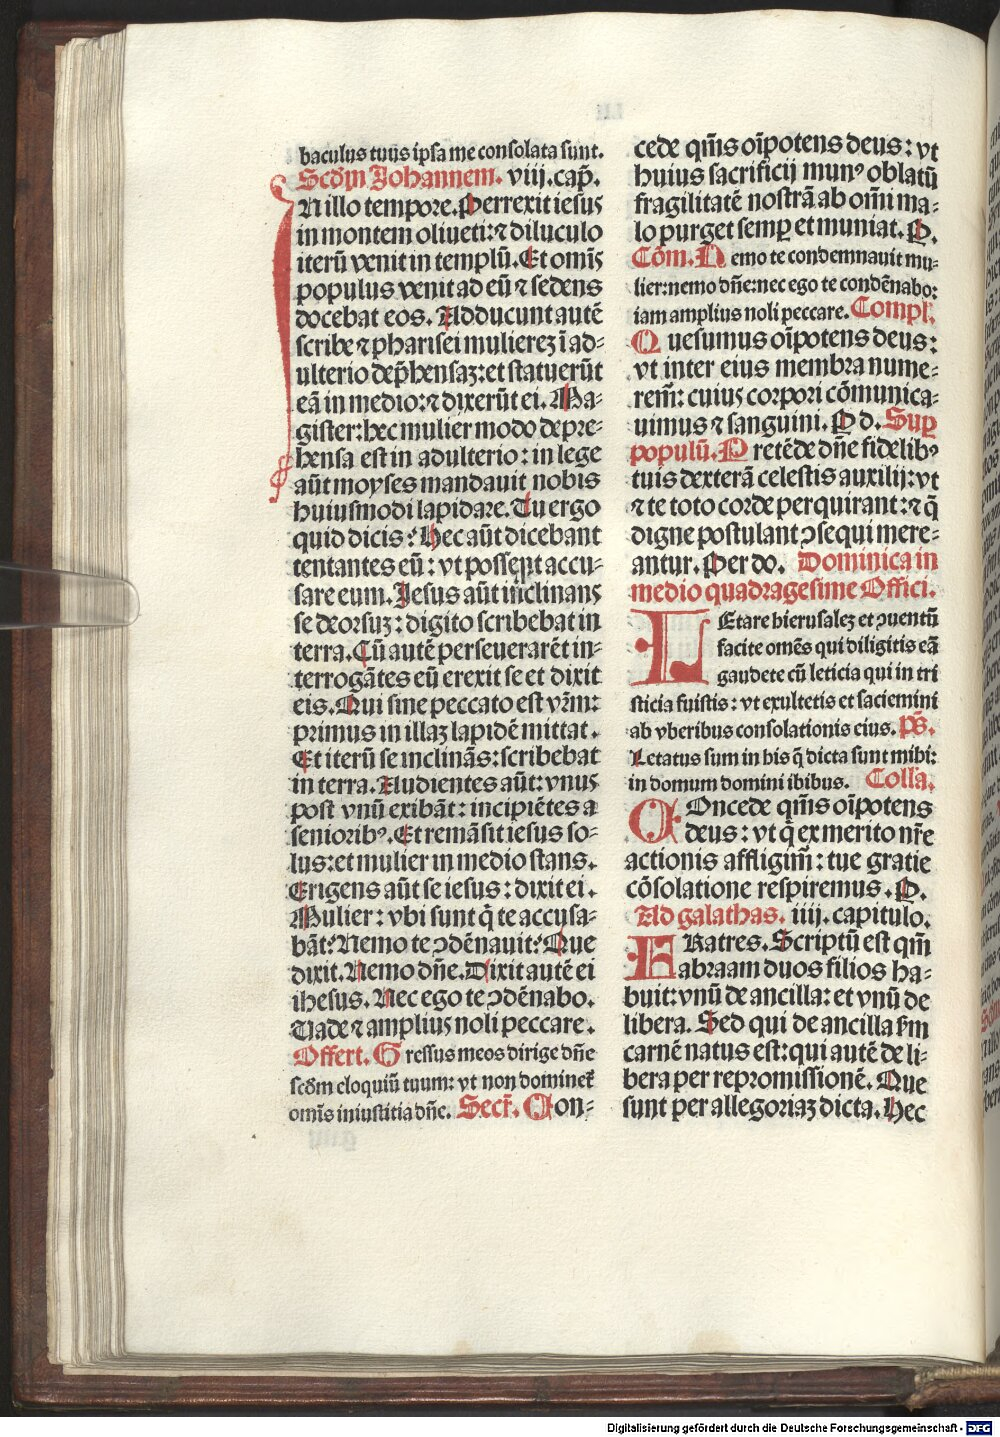 baculus tuus ipsa me consolata sunt.
Scd̃m Johannem. viij. cap̃.
IN illo tempore. Perrexit iesus
in montem oliueti: ⁊ diluculo
iterũ venit in templũ. Et omĩs
populus venit ad eũ ⁊ sedens
docebat eos. Adducunt autẽ
scribe ⁊ pharisei mulierez ĩ ad⸗
ulterio dep̃hensaz: et statuerũt
eã in medio: ⁊ dixerũt ei. Ma⸗
gister: hec mulier modo depre⸗
hensa est in adulterio: in lege
aũt moyses mandauit nobis
huiusmodi lapidare. Tu ergo
quid dicis? Hec aũt dicebant
tentantes eũ: vt possent accu⸗
sare eum. Iesus aũt inclinans
se deorsuz: digito scribebat in
terra. Cũ autẽ perseuerarẽt in⸗
terrogãtes eũ erexit se et dixit
eis. Qui sine peccato est vr̃m:
primus in illaz lapidẽ mittat.
Et iterũ se inclinãs: scribebat
in terra. Audientes aũt: vnus
post vnũ exibãt: incipiẽtes a
seniorib⁹. Et remãsit iesus so⸗
lus: et mulier in medio stans.
Erigens aũt se iesus: dixit ei.
Mulier: vbi sunt q̃ te accusa⸗
bãt? Nemo te ↄdẽnauit? Que
dixit. Nemo dñe. Dixit autẽ ei
ihesus. Nec ego te ↄdẽnabo.
Uade ⁊ amplius noli peccare.
Offert. Gressus meos dirige dñe
scd̃m eloquiũ tuum: vt non dominet̃
omĩs iniustitia dñe. Secr̃. Con⸗
cede qm̃s oĩpotens deus: vt
huius sacrificij mun⁹ oblatũ
fragilitatẽ nostrã ab om̃i ma⸗
lo purget semꝑ et muniat. P.
Cõm. Nemo te condemnauit mu⸗
lier: nemo dñe: nec ego te condẽnabo:
iam amplius noli peccare. Compl̃.
Quesumus oĩpotens deus:
vt inter eius membra nume⸗
rem̃: cuius corpori cõmunica⸗
uimus ⁊ sanguini. P d. Suꝑ
populũ. Pretẽde dñe fidelib⁹
tuis dexterã celestis auxilij: vt
⁊ te toto corde perquirant: ⁊ q̃
digne postulant ↄsequi mere⸗
antur. Per do. Dominica in
medio quadragesime Offici.
LEtare hierusalez et ↄuentũ
facite omẽs qui diligitis eã
gaudete cũ leticia qui in tri
sticia fuistis: vt exultetis et saciemini
ab vberibus consolationis eius. Ps̃.
Letatus sum in his q̃ dicta sunt mihi:
in domum domini ibibus. Collã.
COncede qm̃s oĩpotens
deus: vt q̃ ex merito nr̃e
actionis affligim̃: tue gratie
cõsolatione respiremus. P.
Ad galathas. iiij. capitulo.
FRatres. Scriptũ est qm̃
abraam duos filios ha⸗
buit: vnũ de ancilla: et vnũ de
libera. Sed qui de ancilla s̃m
carnẽ natus est: qui autẽ de li⸗
bera per repromissionẽ. Que
sunt per allegoriaz dicta. Hec
Digitalisierung gefördert durch die Deutsche Forschungsgemeinschaft - DFG